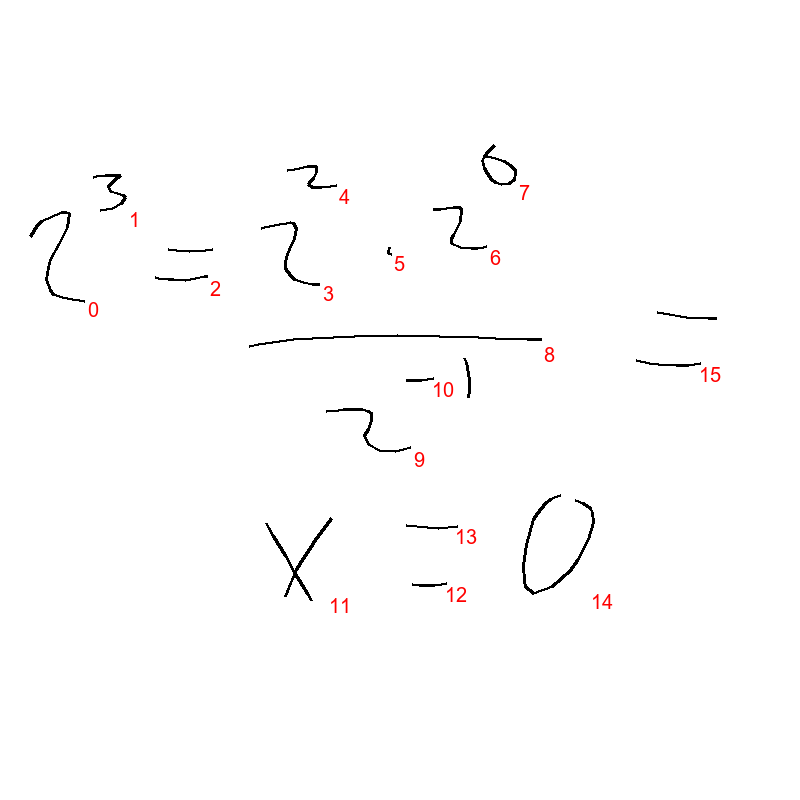 2³ = (2² · 2⁶) / 2⁻¹ =
x = 0
0 1 2 3 4 5 6 7 8 9 10 11 12 13 14 15